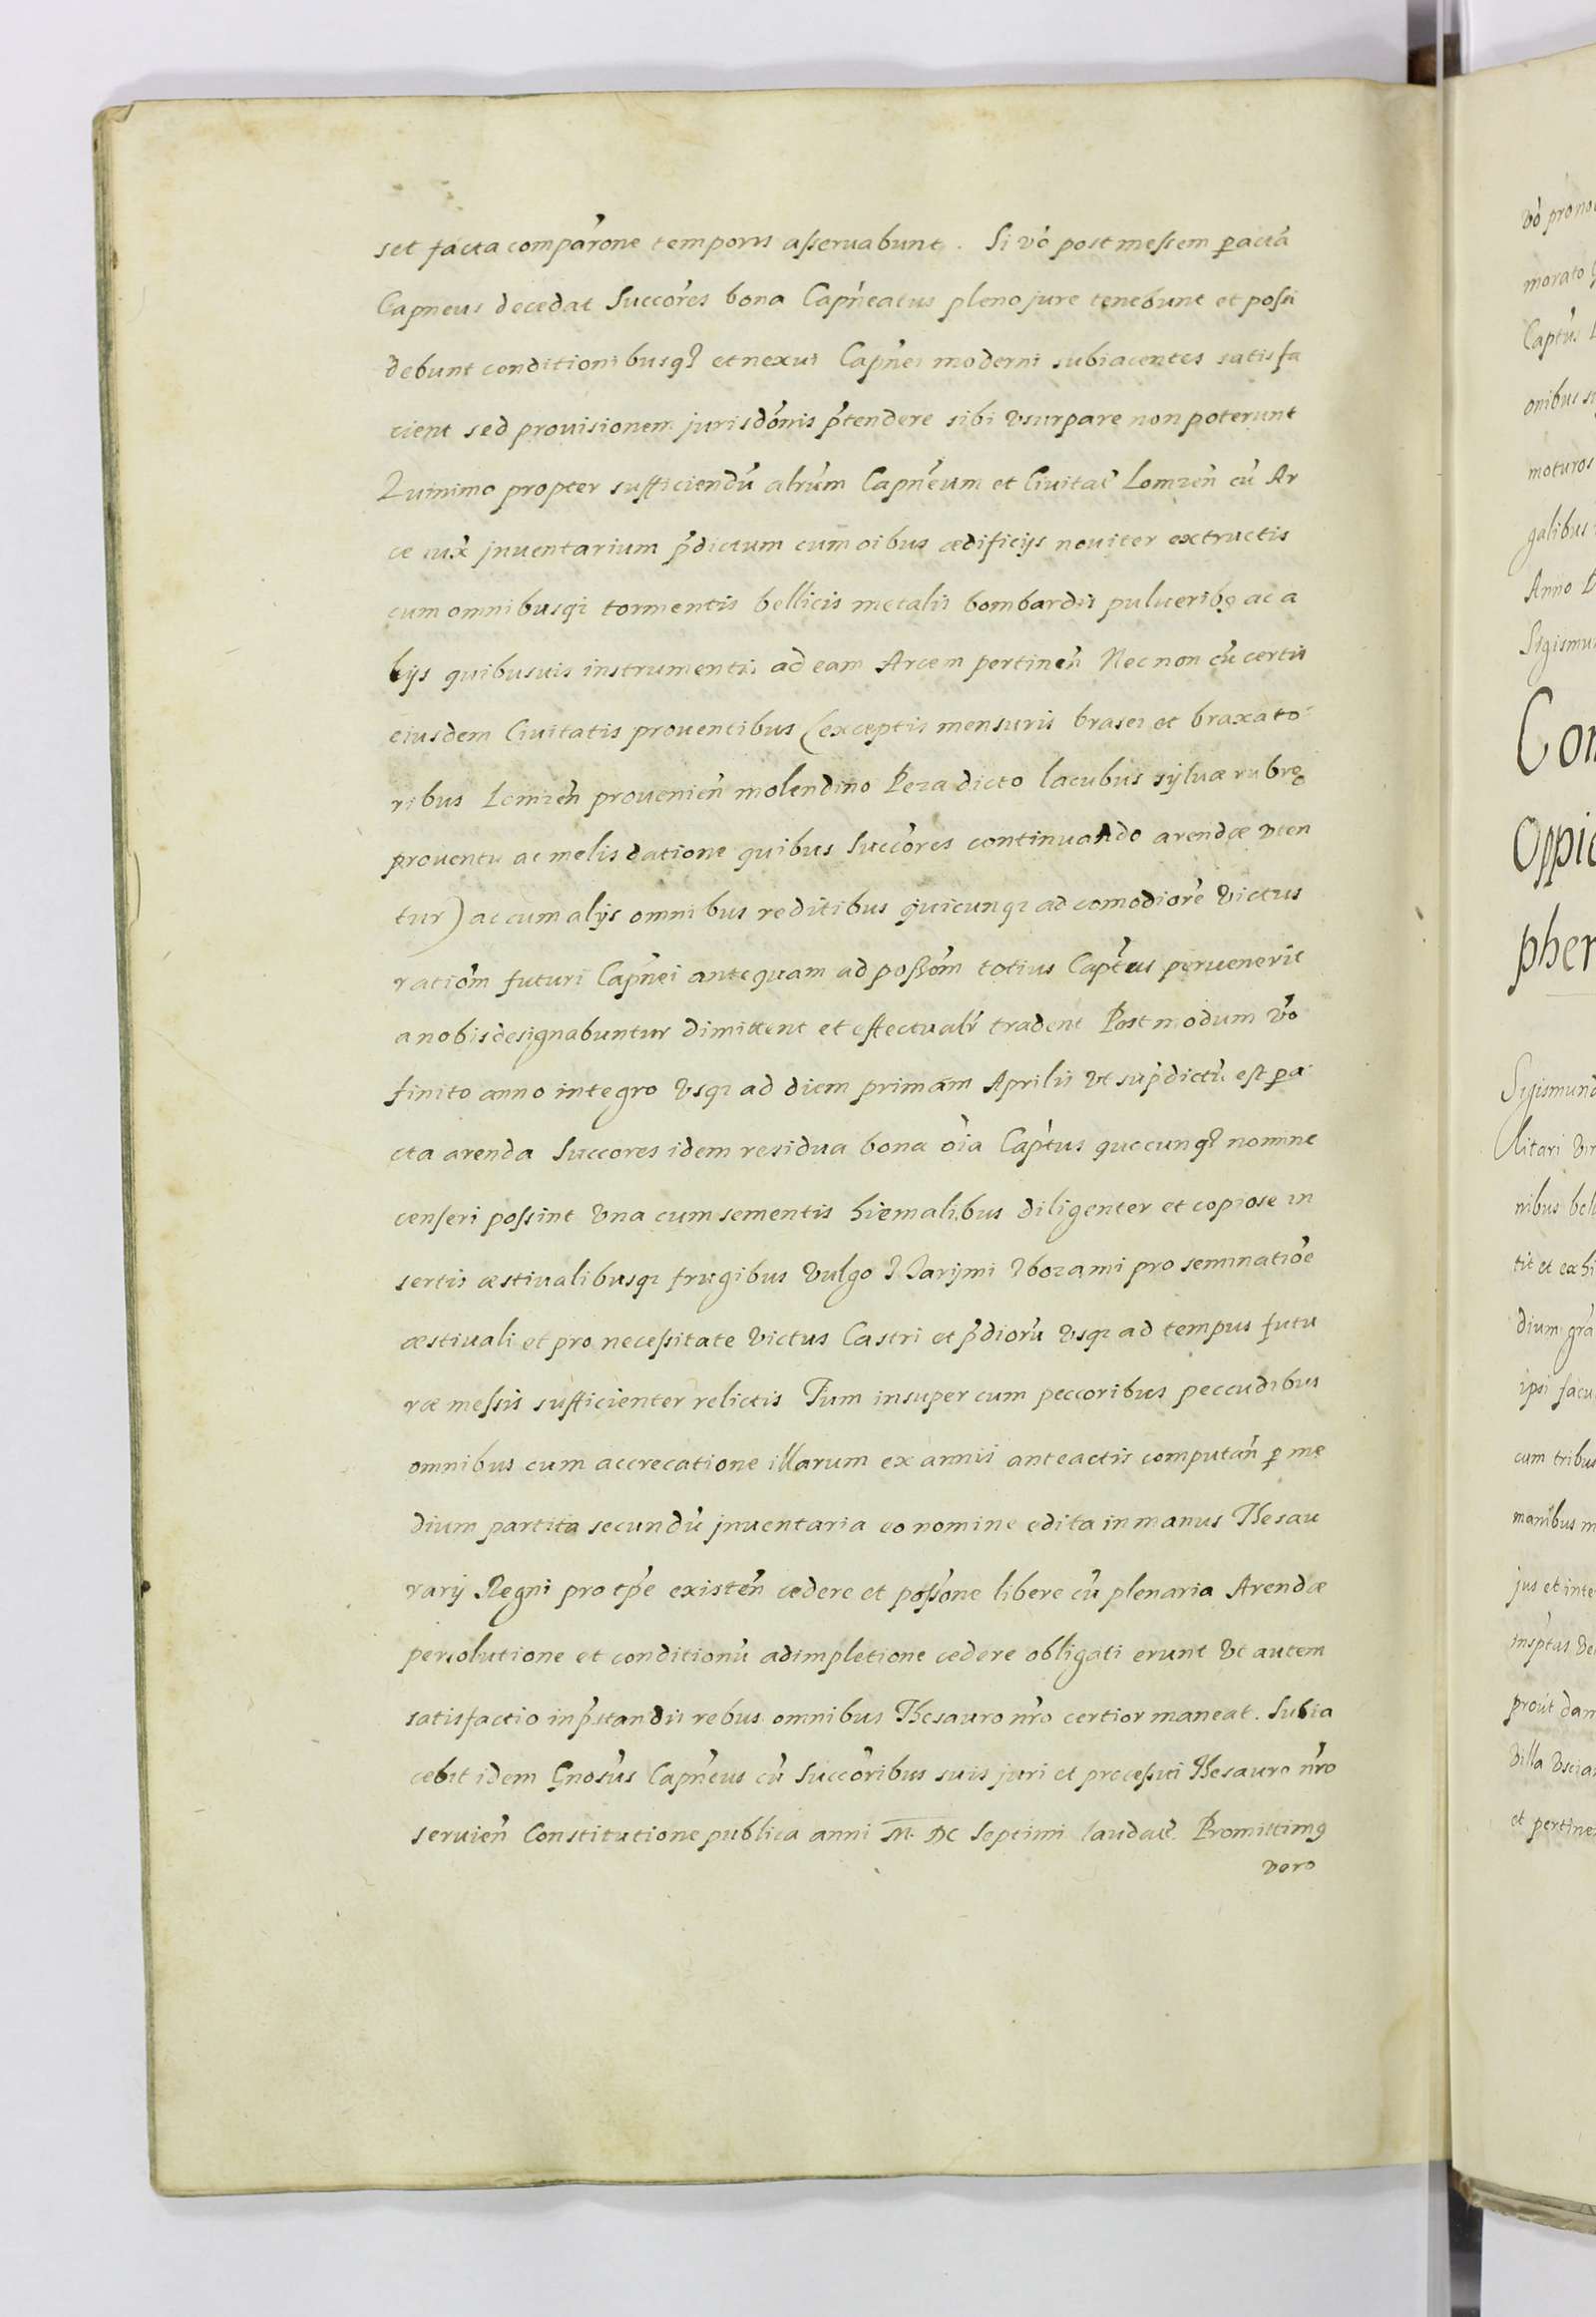 set facta compar̃one temporis asseruabunt. Si vo᷉ post messem ꝑactã
Capneus decedat Succor̃es bona Cap̃neatus pleno jure tenebunt et possi
debunt conditionibusq₃ et nexui Cap̃nei moderni subiacentes satisfa
cient sed prouisionem jurisdo᷉nis p̃tendere sibi vsurpare non poterunt
Quinimo propter sufficiendũ alr̃um Capñeum et Ciuitat̃ Lomzeñ cũ Ar
ce iux̃ jnuentarium p̃dictum cum oibus ædificijs nouiter extructis
cum omnibusq₃ tormentis bellicis metalis bombardis pulueribꝯ ac a
lijs quibusuis instrumentis ad eam Arcem pertineñ Nec non cũ certis
eiusdem Ciuitatis prouentibus (exceptis mensuris brasei et braxato
ribus Lomzeñ prouenieñ molendino Peza dicto lacubus syluæ rubro
prouentu ac melis datione quibus Succor̃es continuando arendæ vten
tur) ac cum alijs omnibus reditibus quicunq₃ ad comodior̃e victus
ratio᷉m futuri Cap̃nei antequam ad posso᷉m totius Capt̃eus peruenerit
a nobis designabuntur dimittent et effectualr̃ tradent Postmodum vo᷉
finito anno integro vsq₃ ad diem primam Aprilis vt sup̃dictũ est ꝑa
cta arenda Succores idem residua bona oĩa Cap̃tus quecunq₃ nomine
censeri possint vna cum sementis hiemalibus diligenter et copiose in
sertis æstiualibusq₃ frugibus vulgo Jarijmi zbozami pro seminatio᷉e
æstiuali et pro necessitate victus Castri et p̃diorũ vsq₃ ad tempus futu
ræ messis sufficienter relictis Tum insuper cum peccoribus peccudibus
omnibus cum accrecatione illarum ex annis anteactis computañ ꝑ me
dium partita secundũ jnuentaria eo nomine edita in manus Thesau
rarij Regni pro tp̃e existeñ cedere et posso᷉ne libere cũ plenaria Arendæ
persolutione et conditionũ adimpletione cedere obligati erunt Vt autem
satisfactio in p̃standis rebus omnibus Thesauro nr̃o certior maneat. Subia
cebit idem Gnosũs Capñeus cũ Succor̃ibus suis juri et processui Thesauro nr̃o
seruieñ Constitutione publica anni M. DC Septimi laudat̃. Promittimꝰ
vero
vo᷉
morato
Captũs
onibus
moturos
galibus
Anno
Sigismu
Con
Oppid
pher
Sigismund
litari vir
nibus bell
tit et exhi
dium gra
ipsi facu
cum tribus
manibus m
jus et inte
prout dan
villa
et pertine